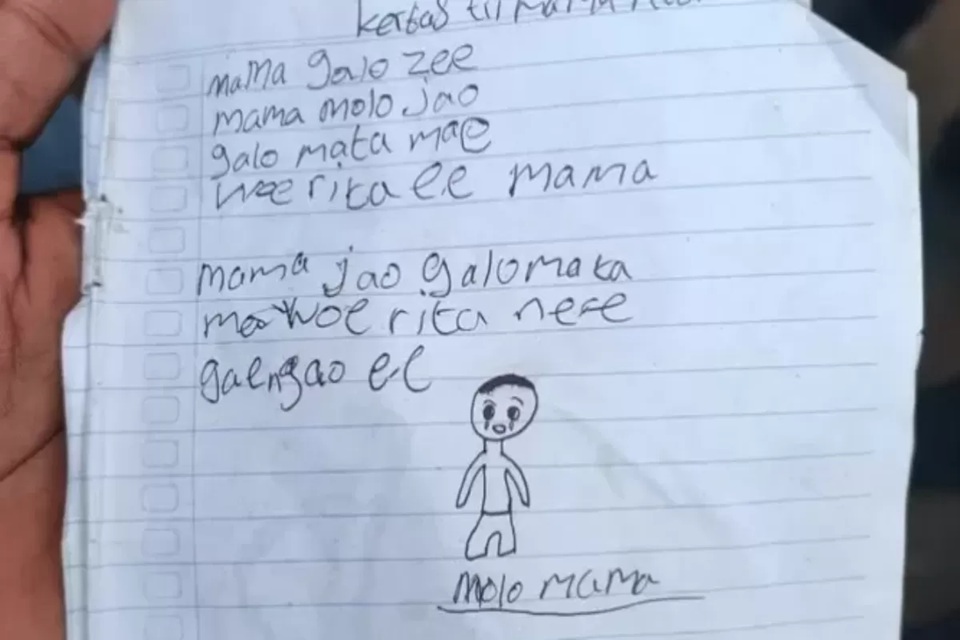 kertas tii mama
mama galo zee
mama molo jao
galo mata mae
woe rita ee mama
mama jao galo mata
mae woe rita ne e
gaengao ee
molo mama